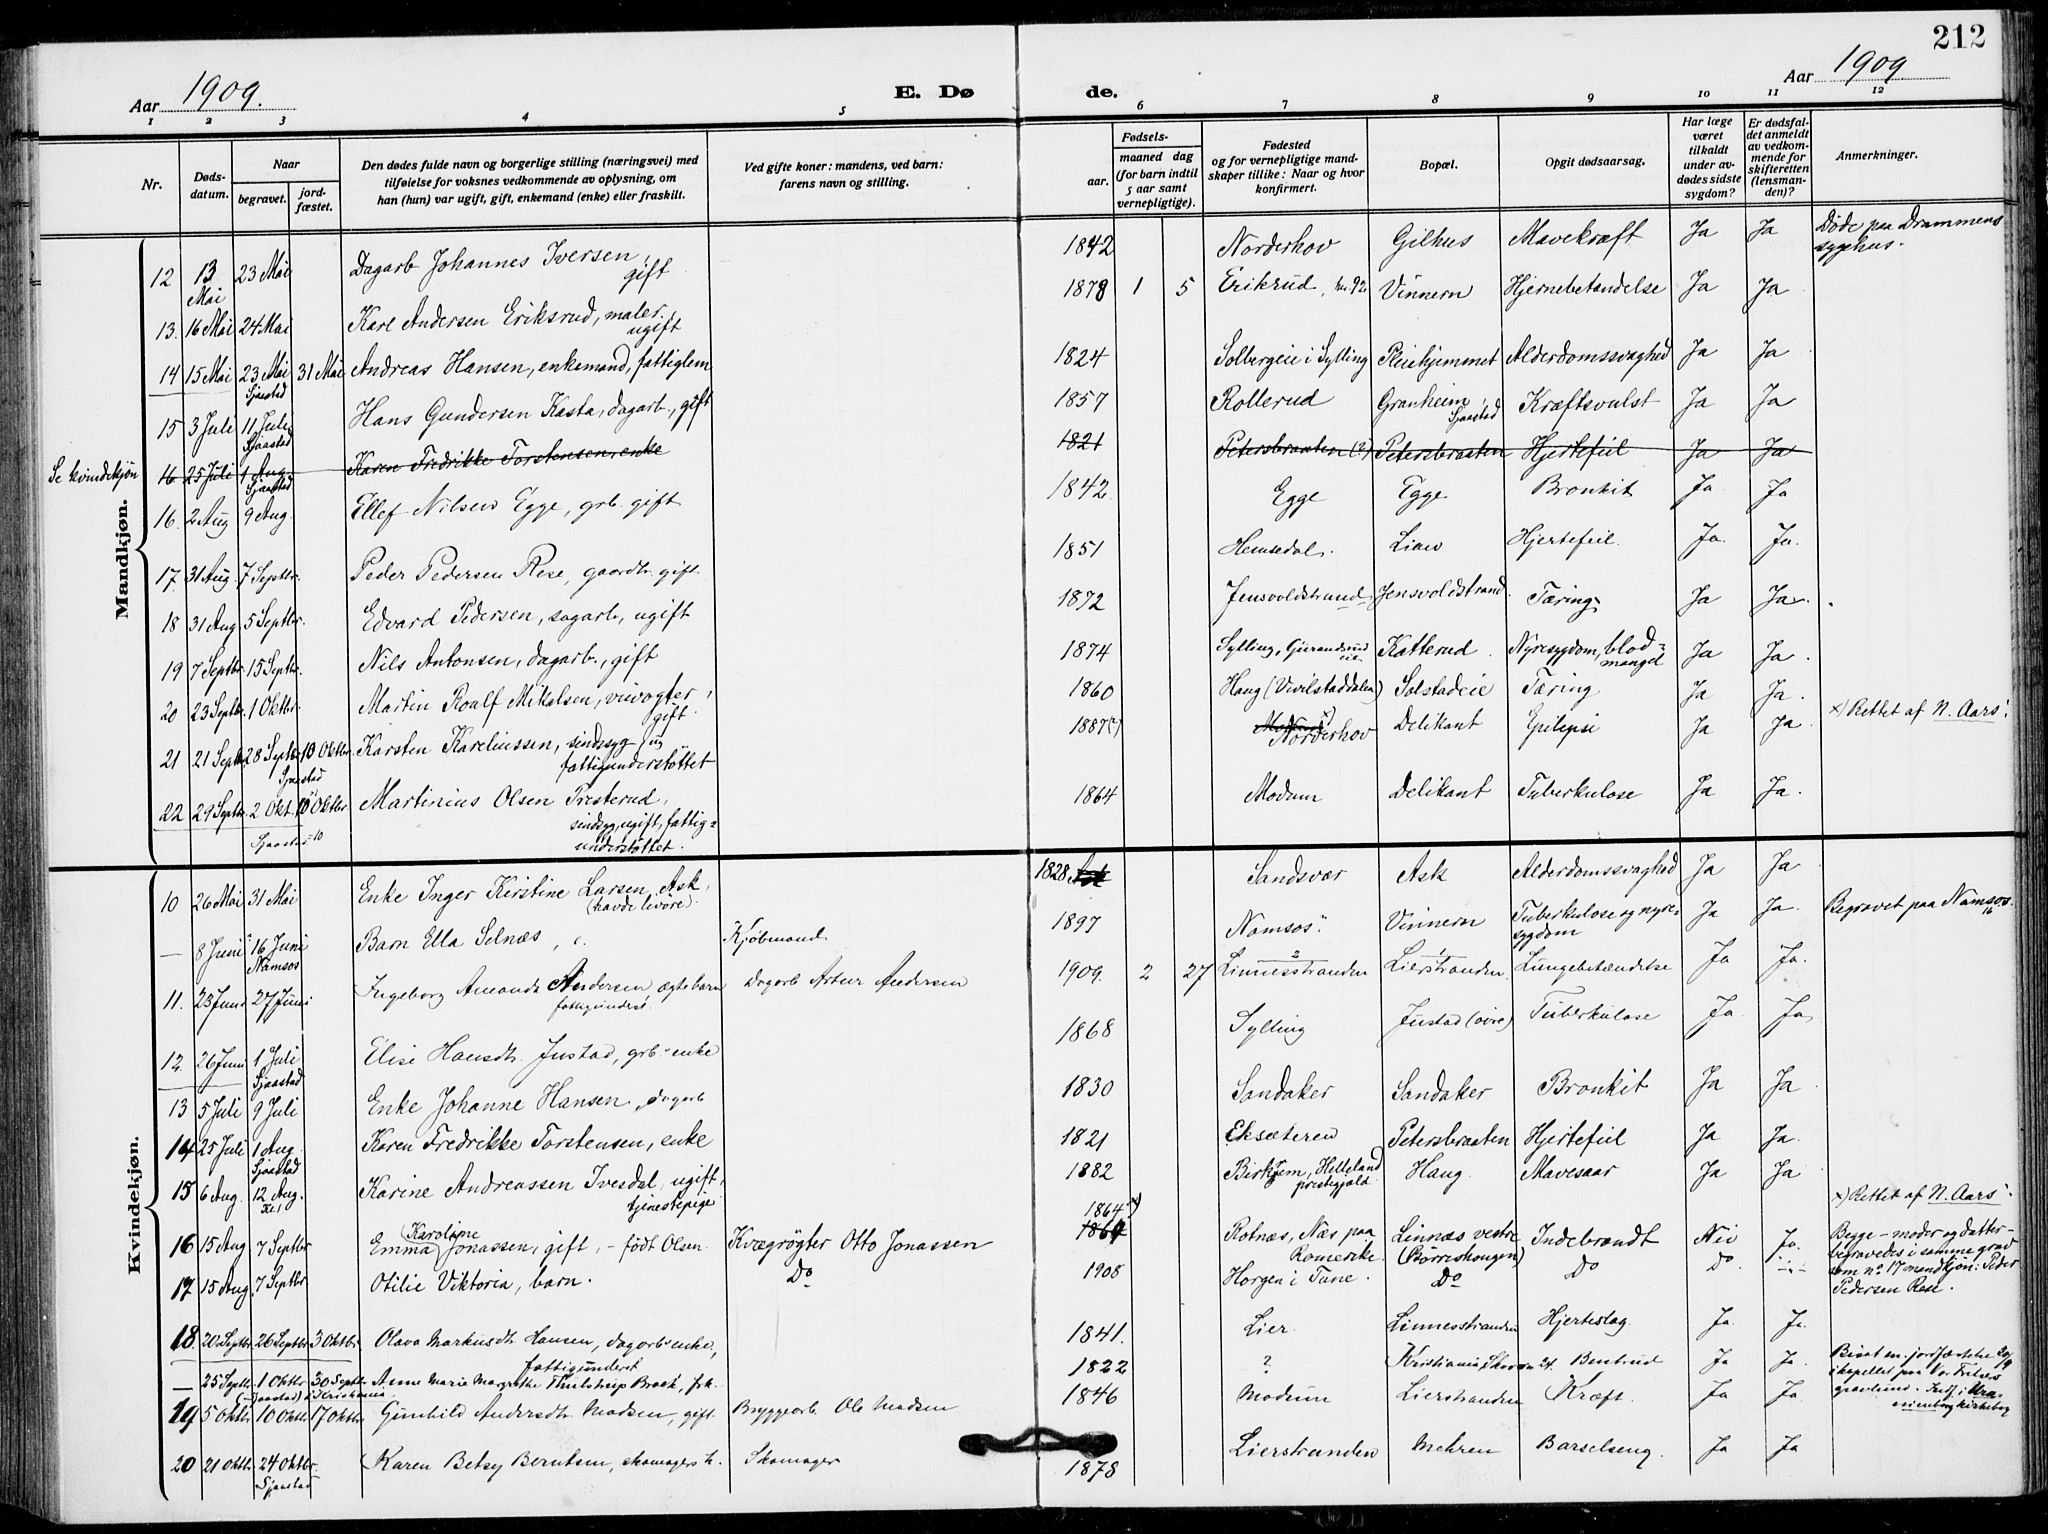 212
Aar 1909.
E. Dø de.
Aar 1909
1 2 3 4 5 6 7 8 9 10 11 12
Nr.
Døds-
datum.
Naar
begravet.
jord-
fæstet.
Den dødes fulde navn og borgerlige stilling (næringsvei) med
tilføielse for voksnes vedkommende av oplysning, om
han (hun) var ugift, gift, enkemand (enke) eller fraskilt.
Ved gifte koner: mandens, ved barn:
farens navn og stilling.
Fødsels-
aar.
maaned dag
(for barn indtil
5 aar samt
vernepligtige).
Fødested
og for vernepligtige mand-
skaper tillike: Naar og hvor
konfirmert.
Bopæl.
Opgit dødsaarsag.
Har læge
været
tilkaldt
under av-
dødes sidste
sygdom?
Er dødsfal-
det anmeldt
av vedkom-
mende for
skifteretten
(lensman-
den)?
Anmerkninger.
Mandkjøn.
12 13 Mai 23 Mai Dagarb Johannes Iversen, gift 1842 Norderhov Gilhus Mavekræft Ja Ja Døde paa Drammens sygehus.
13. 16 Mai 24 Mai Karl Andersen Eriksrud, maler. ugift 1878 1 5 Erikrud, Vinnern Hjernebetændelse Ja Ja
14 15 Mai 23 Mai Sjaastad 31 Mai Andreas Hansen, enkemand, fattiglem 1824 Solbergeie i Sylling Pleiehjemmet Alderdomssvaghed Ja Ja
15 3 Juli 11 Juli Sjaastad Hans Gundersen Kasta, dagarb., gift 1857 Rollerud Granheim, Sjaastad Kræftsvulst Ja Ja
Se kvindekjøn 16 25 Juli 1 Aug Sjaastad Karen Fredrikke Torstensen, enke 1821 Petersbraaten (?) Petersbraaten Hjertefeil Ja Ja
16. 2 Aug 9 Aug. Ellef Nilsen Egge, grb. gift 1842 Egge Egge Bronkit Ja Ja
17. 31 Aug. 7 Septbr. Peder Pedersen Rese, gaardbr. gift. 1851 Hemsedal. Lian Hjertefeil. Ja. Ja.
18 31 Aug 5 Septbr. Edvard Pedersen, sagarb, ugift 1872 Jensvoldstrand Jensvoldstrand. Tæring Ja Ja.
19 7 Septbr. 15 Septbr. Nils Antonsen, dagarb., gift 1874 Sylling, eie Katterud. Nyresygdom, blod= mangel Ja Ja.
20 23 Septbr. 1 Oktbr. Martin Roalf Mikalsen, vævogter, gift. 1860 Haug (Vivilstaddalen) Solstadeie Tæring Ja Ja.
21 21 Septbr. 28 Septbr. Sjaastad 10 Oktbr. Karsten Kareliussen, sindssyg, ug fattigunderstøttet 1887(?) x) Norderhov Delikant Epilepsi Ja Ja x) Rettet af N. Aars.
22 29 Septbr. 2 Okt. Sjaastad 10 Oktbr. Martinius Olsen Presterud, sindsyg, ugift, fattig= understøttet. 1864 Modum Delikant Tuberkulose Ja Ja.
Kvindekjøn.
10 26 Mai 31 Mai Enke Inger Kirstine Larsen, Ask, (havde livøre). 1828 Ask Sandsvær Ask Alderdomssvaghed Ja Ja
— 8 Juni 16 Juni Namsos Barn Ella Selnæs, Kjøbmand 1897 Namsos. Vinnern Tuberkulose og nyre= sygdom Ja Ja. Begravet paa Namsos. 16
11. 23 Juni 27 Juni Ingeborg Amanda Andersen, ægte barn fattigunderst. Dagarb Artur Andersen 1909. 2 27 Linnesstranden Lierstranden. Lungebetændelse Ja Ja.
12. 26 Juni 1 Juli Sjaastad Elise Hansdt. Justad, grb. enke 1868 Sylling Justad (øvre) Tuberkulose Ja. Ja
13 5 Juli 9 Juli Enke Johanne Hansen, dagarb 1830 Sandaker Sandaker Bronkit Ja Ja
14 25 Juli 1 Aug. Sjaastad Karen Fredrikke Torstensen, enke 1821 Eksæteren Petersbraaten Hjertefeil Ja Ja.
15 6 Aug. 12 Aug. Karine Andreassen Ivesdal, ugift, tjenestepige 1882 Birkjem, Helleland prestegjeld Haug. Mavesaar Ja Ja
16 15 Aug 7 Septbr Emma Karoline Jonassen, gift, - født Olsen. Kvægrøgter Otto Jonassen 1864 x) 1864 Rotnæs, Næs paa Romerike. Linnæs vestre (Børreshaugen) Indebrændt Nei Ja. x) Rettet af N. Aars.
17 15 Aug. 7 Septbr Otilie Viktoria, barn. Do 1908 Horgen i Tune. Do Do Do. Begge - moder og datter - begravedes i samme grav som no 17 mandkjøn: Peder Pedersen Rese.
18. 20 Septbr 26 Septbr 3 Oktbr. Olava Markusdt. Hansen, dagarb. enke, fattigunderst. 1841. Lier. Linnesstranden Hjerteslag. Ja. Ja.
— 25 Septbr. 1 Oktbr (Sjaastad) 30 Septbr. i Kristiania. Anne Marie Margrethe Thilstrup Brock, frk. 1822 ? Kristiania, Ja Ja. i kapellet paa Vor Frelsers gravlund. kirkebog
19 5 Oktbr 10 Oktbr 17 Oktbr Gunhild Andersdt. Madsen, gift. Bryggearb. Ole Madsen 1846 Modum Lierstranden Kræft. Ja Ja.
20 21 Oktbr. 24 Oktbr. Sjaastad Karen Betsy Berntsen, skomagers h. Skomager 1878 Lierstranden Mehren Barselseng. Ja Ja